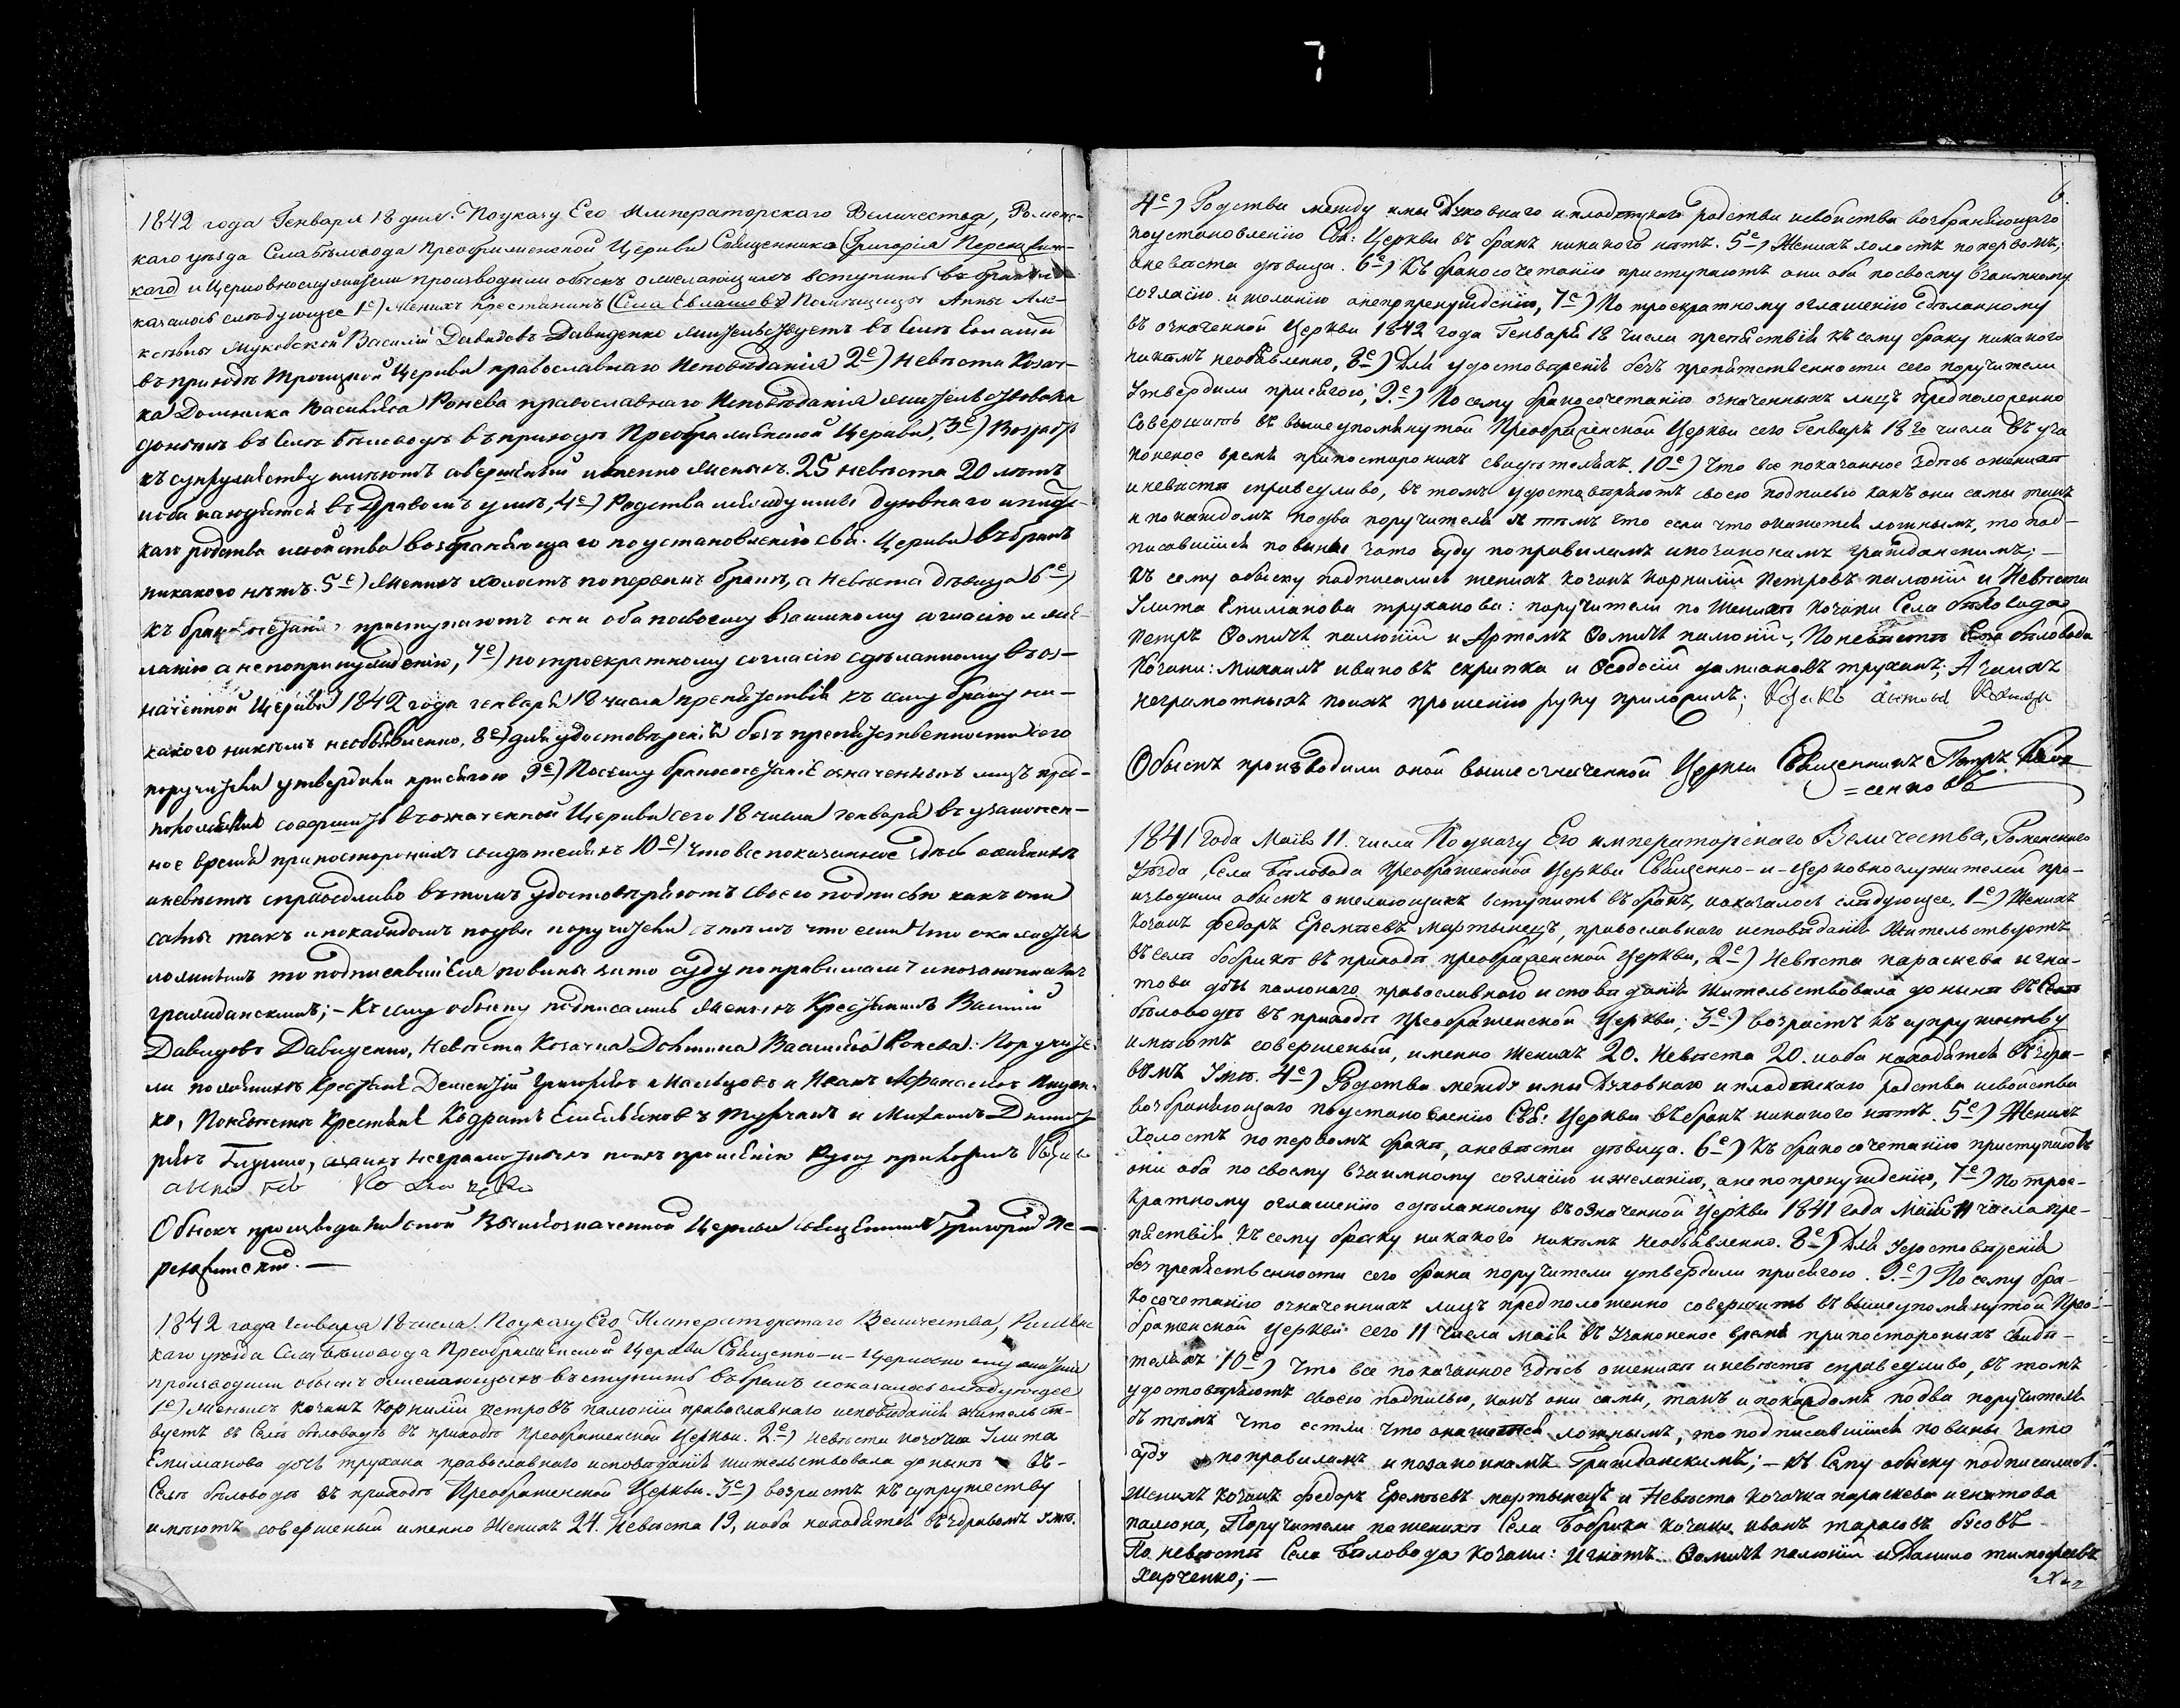 7
1842 года Генваря 18 дня. Поуказу Его Императорскаго Величества, Роменс-
каго уезда Села Беловода Преображенской Церкви Священника Григорія
каго и Церковнослужители производили обыскъ о желающихъ вступить въ бракъ и
казалось следующее 1е) Женихъ крестьянинъ Села Евлашовъ Помещицы Анны Але-
ксѣвны Жуковской Василій Давидовъ Давиденко жительствуетъ въ селѣ
въ приходѣ Троицкой Церкви православнаго Исповѣданія 2е) Невѣста Козач-
ка Домникка Васильева Ронева православнаго Исповѣданія жительствовала
донынѣ въ Селѣ Беловодѣ въ приходѣ Преображенской Церкви, 3е) Возрастъ
къ супружеству имѣютъ совершенный именно Женихъ 25 невѣста 20 лѣтъ
иоба находятся въ Здравомъ умѣ, 4е) Родства между ими духовнаго и плодс-
каго родства исвойства возбраняющаго поустановленію свя. Церкви въ бракъ
никакого нѣтъ. 5е) Женихъ холостъ попервымъ бракѣ, а Невѣста дѣвица 6е)
Къ бракосочетанію приступаютъ они оба посвоему взаимному согласію и же-
ланію а непопринужденію, 7е) потроекратному согласію сдѣланному въ оз-
наченной Церкви 1842 года генваря 18 числа препятствія къ сему браку ни-
какого никѣмъ необъявленно, 8е) для удостовѣренія безъ препятственности сего
поручители утвердили присягою 9е) Посему бракосочетаніе означенныхъ лицъ пред-
положенно совершить въ означенной Церкви сего 18 числа генваря въ узаконен-
ное время припостороннихъ свидѣтеляхъ 10е) что все показанное здѣсь о женихѣ
иневѣстѣ справедливо въ томъ удостовѣряютъ своею подписью какъ они
сами такъ и покаждомъ подва поручителя съ тѣмъ что если что окажется
ложнымъ то подписавшіеся повины зато суду поправиламъ ипозаконамъ
гражданскимъ; - Къ сему обыску подписались Женихъ Крестьянинъ Василій
Давидовъ Давиденко, Невѣста Козачка Домника Васильева Ронева: Поручите-
ли поженихѣ Крестьяне Дементій Григорьевъ и Иванъ Афанасіевъ
ко, Поневѣстѣ Крестьяне Кодратъ Емельяновъ и Михаилъ
неграмотныхъ поихъ прошенію Руку приложилъ
Обыскъ производили оной Вышеозначенной Церкви Священникъ Григорій Пе-
1842 года генваря 18 числа. Поуказу Его Императорскаго Величества, Роменс
каго уезда Села Беловода Преображенской Церкви Священно-и-Церковно служители
производили обыскъ ожелающихъ вступить въ бракъ иоказалось слѣдующее
1е) Женихъ козакъ Корнилій петровъ палюхій православнаго исповѣданія жительст-
вуетъ въ Селѣ бѣловодѣ въ приходѣ Преображенской Церкви. 2е) невѣста козачка Улита
Епиманова дочь трухана православнаго исповѣданія жительствовала донынѣ въ-
Селѣ бѣловодѣ въ приходѣ Преображенской Церкви. 3е) возрастъ къ супружеству
имѣютъ совершеный именно Женихъ 24. Невѣста 19, иоба находятся въ здравомъ умѣ.
6.
4е) Родства между ими Духовнаго иплодскаго родства исвойства возбраняющаго
поустановленію Свя: Церкви въ бракъ никакого нѣтъ. 5е) Женихъ холостъ попервомъ,
аневѣста дѣвица. 6е) Къ бракосочетанію приступаютъ они оба посвоему взаимному
согласію ижеланію анепопренужденію, 7е) По троекратному оглашенію сдѣланному
въ означенной Церкви 1842 года Генваря 18 числа препятствія къ сему браку никакого
никѣмъ необъявленно, 8е) Для удостовѣренія безъ препятственности сего поручители
Утвердили присягою; 9.е) По сему бракосочетанію означенныхъ лицъ предположенно
Совершить въ вышеупомянутой Преображенской Церкви сего Генваря 18го числа въ уза
коненое время припостороннихъ свидѣтеляхъ. 10е) Что все показанное здѣсь оженихѣ
иневѣстѣ справедливо, въ томъ удостовѣряютъ своею подписью какъ они самы такъ
и покаждомъ подва поручителя съ тѣмъ что если что окажется ложнымъ, то под-
писавшіися повины зато суду поправиламъ ипозаконамъ гражданскимъ; -
Къ сему обыску подписались женихъ козакъ корнилій петровъ палюхій и Невѣста
Улита Епиманова труханова: поручители по Женихѣ козаки Села бѣловода
петръ Ѳомичъ палюхій и Артемъ Ѳомичъ палюхій, Поневѣстѣ Села бѣловода
Козаки: михаилъ ивановъ скрипка и Ѳеодосій даміановъ труханъ; А заихъ
неграмотныхъ поихъ прошенію руку приложилъ; Козакъ
Обыскъ производили оной вышеозначенной Церкви Священникъ Петръ
=сенковъ
1841 Года Маія 11. числа Поуказу Его императорскаго Величества, Роменскаго
Уезда, Села Бѣловода Преображенской Церкви Священно-и-церковнослужителей про-
изводили обыскъ ожелающихъ вступить въ бракъ, иоказалось слѣдующее, 1е) Женихъ
козакъ федоръ Еремѣевъ мартынецъ, православнаго исповѣданія жительствуетъ
въ селѣ бобрикѣ въ приходѣ преображенской церкви, 2е) Невѣста параскева игна-
това дочь палюхаго православнаго исповѣданія жительствовала донынѣ въ Селѣ
бѣловодѣ въ приходѣ Преображенской Церкви; 3е) возрастъ къ супружеству
имѣютъ совершеный, именно женихъ 20. Невѣста 20. иоба находятся въ здра-
вомъ Умѣ. 4е) Родства между ими Духовнаго иплодскаго родства исвойства
возбраняющаго поустановленію Свя: Церкви въ бракъ никакого нѣтъ. 5е) Женихъ
Холостъ попервомъ бракѣ, аневѣста дѣвица. 6е) Къ бракосочетанію приступаютъ
они оба по своему взаимному согласію ижеланію, анепопренуждению, 7е) потрое-
кратному оглашенію сдѣланному въ означенной Церкви 1841 года маія 11 числа пре-
пятствія къ сему браку никакого никѣмъ необъявленно. 8е) Для Удостовѣренія
без препятственности сего брака поручители утвердили присягою. 9.е) По сему бра-
косочетанію означенныхъ лицъ предположенно совершить въ вышеупомянутой Прео-
браженской Церкви сего 11 числа маія въ Узаконеное время припосторонныхъ свидѣ-
теляхъ 10е) Что все показанное здѣсь оженихѣ иневѣстѣ справедливо, въ томъ
удостовѣряютъ своею подписью, какъ они самы, такъ и покаждомъ подва поручителя
съ тѣмъ что естли что окажется ложнымъ, то подписавшіися повины зато
суду поправиламъ ипозаконамъ Гражданскимъ; - къ Сему обыску подписались.
Женихъ козакъ федоръ Еремѣевъ мартынецъ и Невѣста козачка параскева игнатова
палюха, Поручители поженихѣ Села Бобрика козаки иванъ тарасовъ бусовъ
По невѣстѣ Села Бѣловода козаки: игнатъ Ѳомичъ палюхій и Данило тимофеевъ
харченко; -